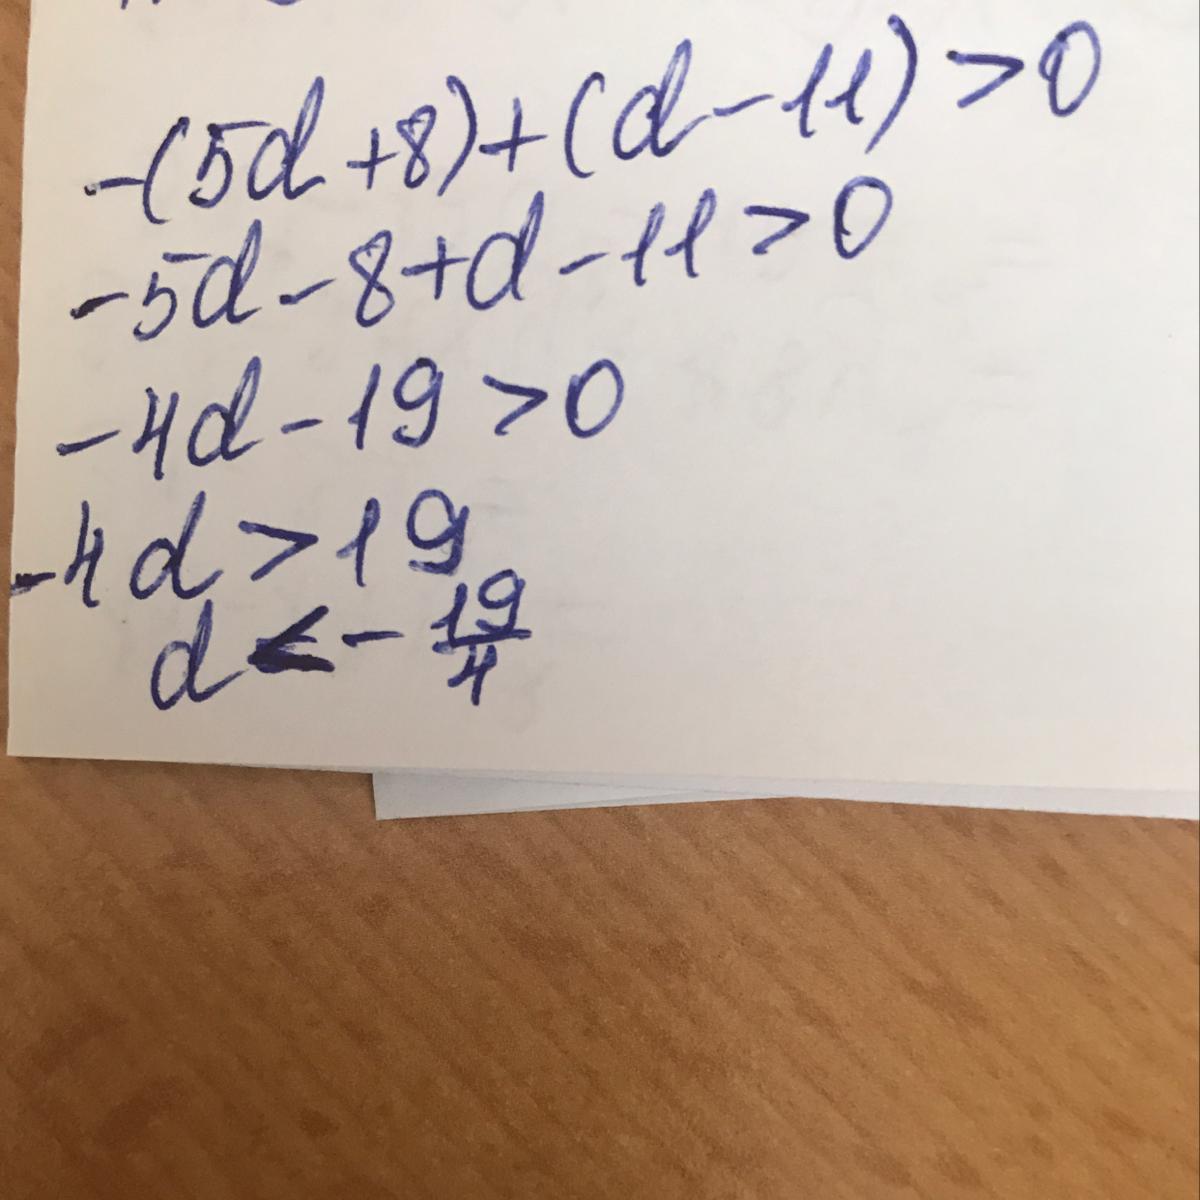 -(5d+8)+(d-11)>0
-5d-8+d-11>0
-4d-19>0
-4d>19
d<-19/4